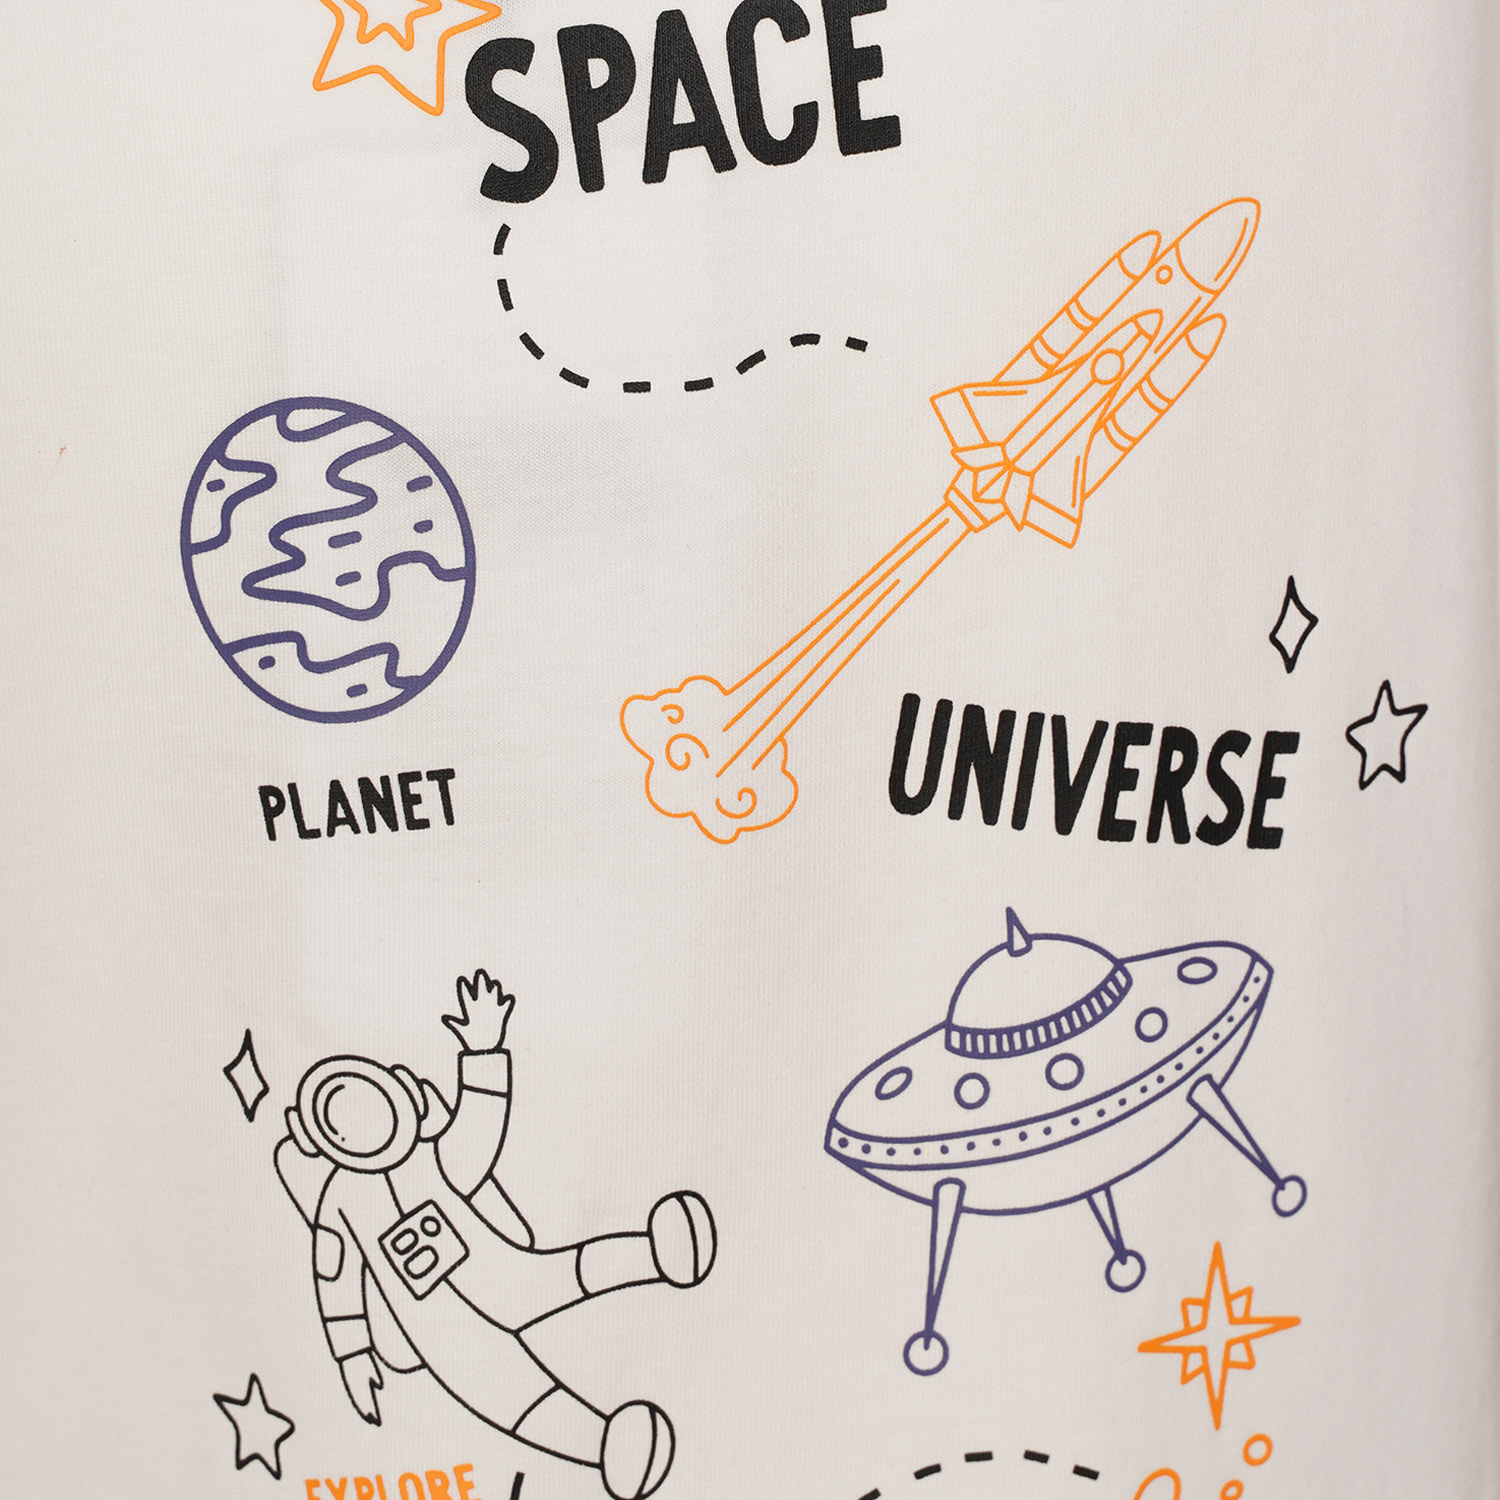 SPACE
UNIVERSE
PLANET
EXPLORE